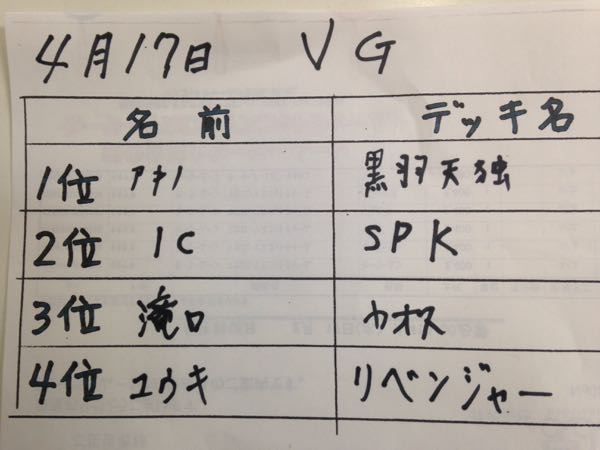 4月17日 VG
名前 デッキ名
1位 アキノ 黒羽天独
2位 IC SPK
3位 滝口 カオス
4位 ユウキ リベンジャー